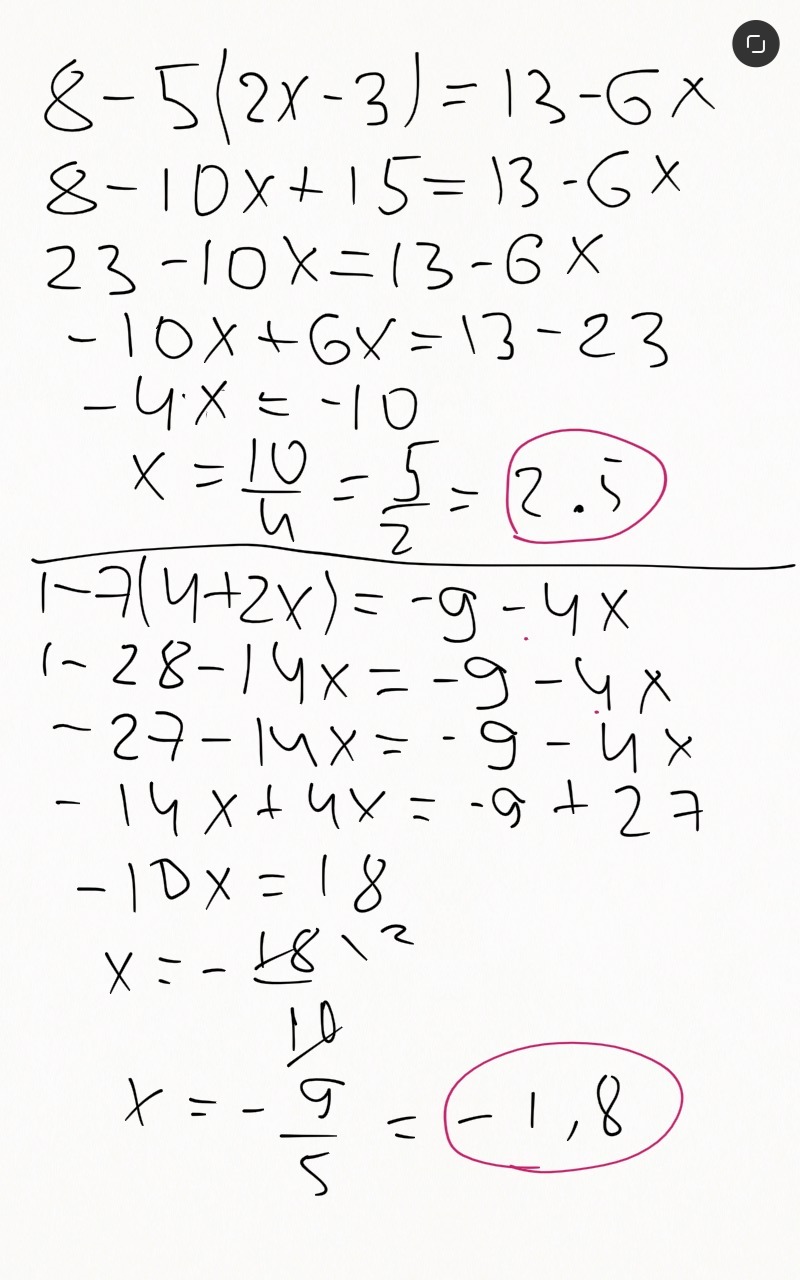 8-5(2x-3)=13-6x
8-10x+15=13-6x
23-10x=13-6x
-10x+6x=13-23
-4·x=-10
x=10/4=5/2=2.5
1-7(4+2x)=-9-4x
1-28-14x=-9-4x
-27-14x=-9-4x
-14x+4x=-9+27
-10x=18
x=-18/10 \2
x=-9/5=-1,8